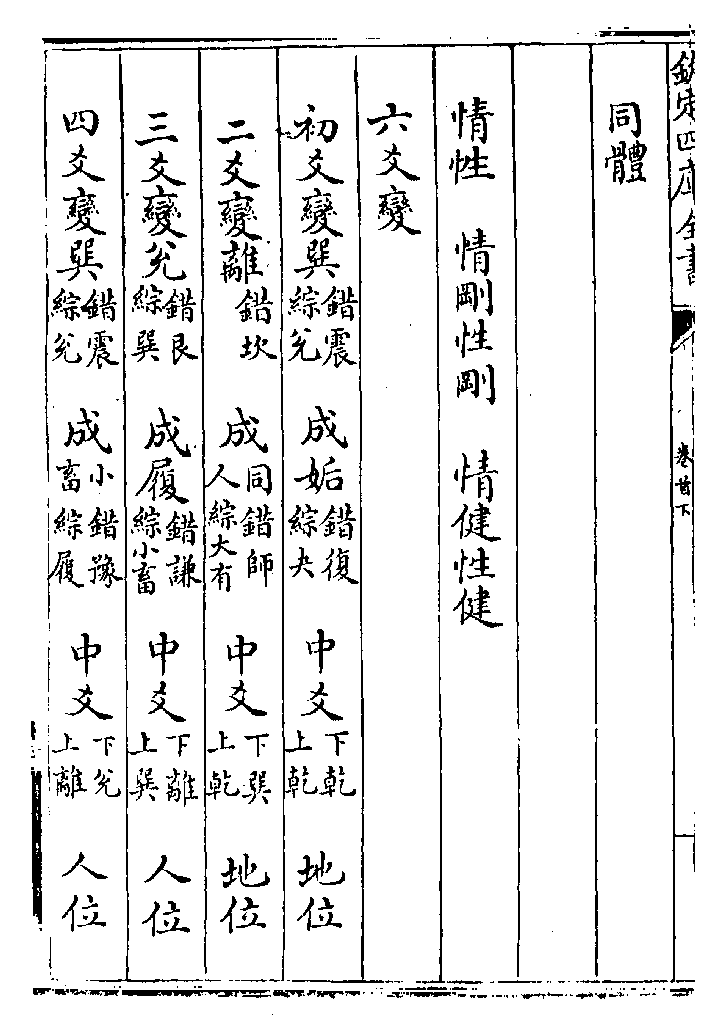 欽定四庫全書
卷首下
同體
情性 情剛性剛 情健性健
六爻變
初爻變巽錯震綜兊 成姤錯復綜夬 中爻下乾上乾 地位
二爻變離錯坎 成同人錯師綜大有 中爻下巽上乾 地位
三爻變兊錯艮綜巽 成履錯謙綜小畜 中爻下離上巽 人位
四爻變巽錯震綜兊 成小畜錯豫綜履 中爻下兊上離 人位